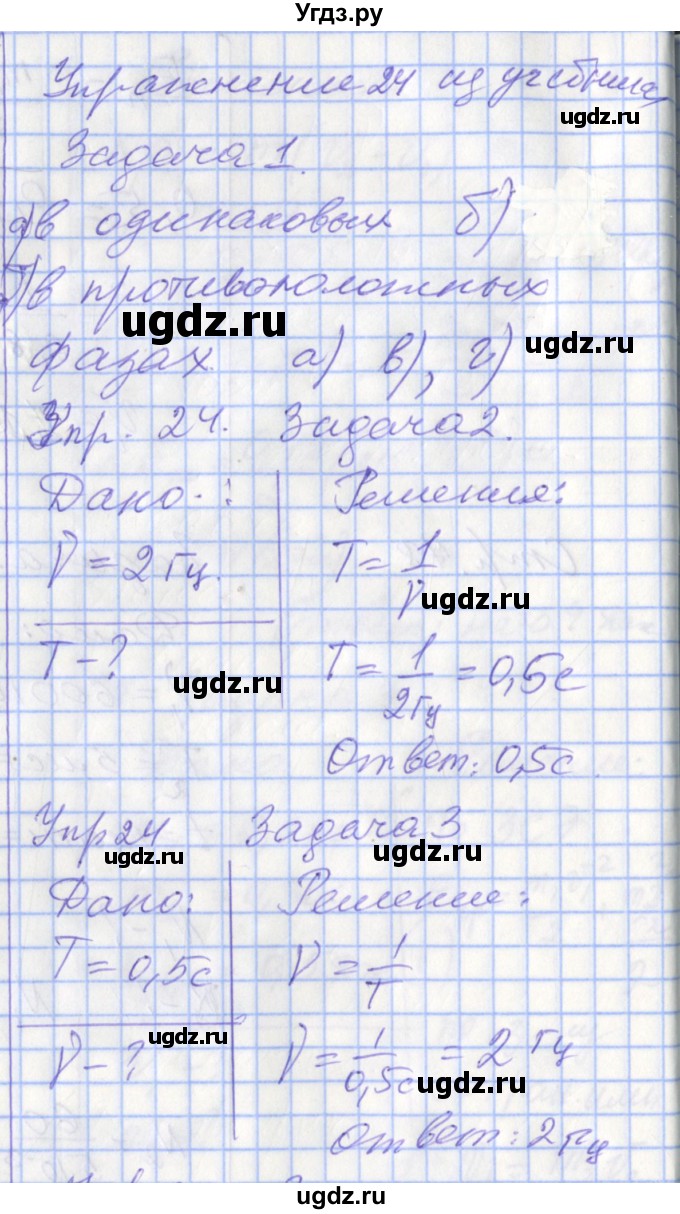 Угдз.ру
Упражнение 24 из учебника
ugdz.ru
Задача 1.
а) в одинаковых б)
б) в противоположных
ugdz.ru
ugdz.ru
фазах а) в), г)
Упр. 24. Задача 2.
Дано: Решения:
ν = 2 Гц. T = 1/ν
ugdz.ru
T - ?
ugdz.ru
T = 1/2Гц = 0,5с
Ответ: 0,5с.
Упр 24 Задача 3
ugdz.ru
ugdz.ru
Дано: Решение:
T = 0,5с ν = 1/T
ugdz.ru
ν - ? ν = 1/0,5с = 2 Гц
ugdz.ru
Ответ: 2 Гц
ugdz.ru